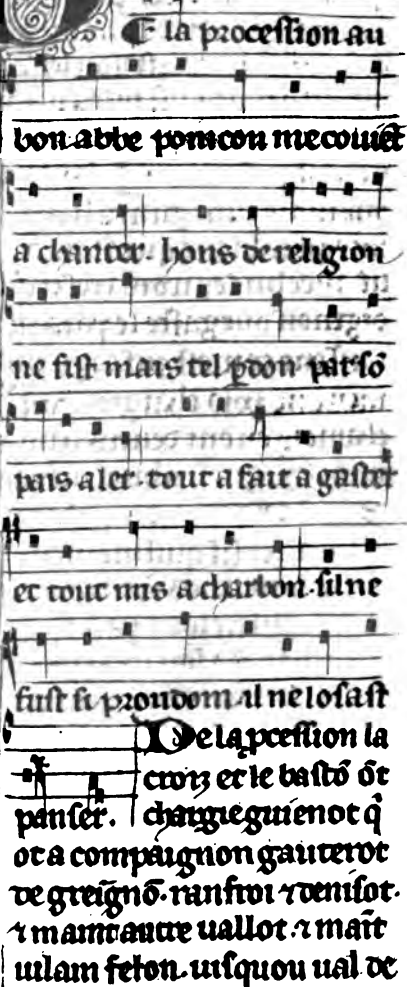 E la procession au
bon abbe poincon me couiẽt
a chanter. hons de religion
ne fist mais tel ꝑdon par sõ
pais aler. tout a fait a gaster
et tout mis a charbon. sil ne
fust si proudom il ne losast
panser.
De la ꝓcession la
croiz et le bastõ ot
chargie guienot q̇
ot a compaignon gauterot
de greignõ. ranfroi ⁊ denisot.
⁊ maint autre uallot. ⁊ mait̃
uilain felon. iusquou ual de